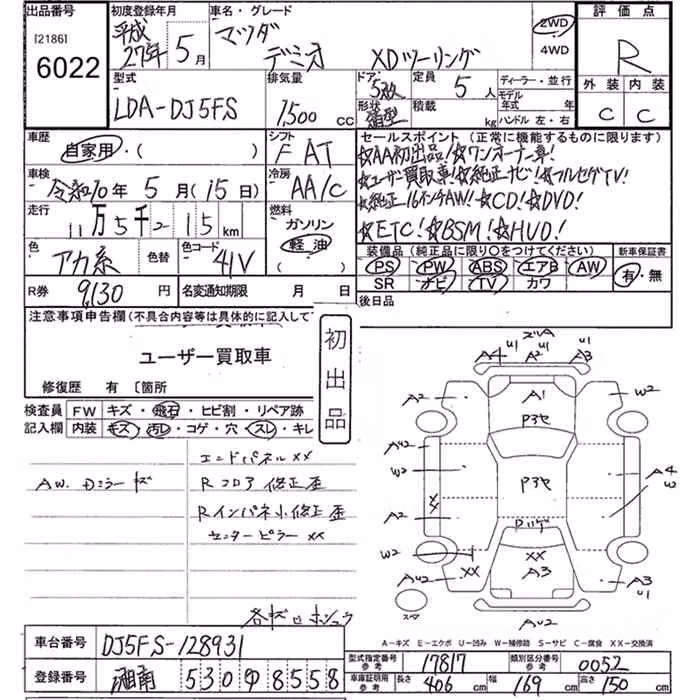 出品番号 初度登録年月 車名・グレード 評価点
[2186] 平成 マツダ 2WD
6022 27年 5月 デミオ XDツーリング 4WD R
型式 排気量 ドア 定員 ディーラー・並行 外装 内装
LDA-DJ5FS 1,500 CC 5枚 5人 モデル年式 年
形状 積載 kg ハンドル 左・右 C C
箱型
車歴 シフト セールスポイント (正常に機能するものに限ります)
自家用・( ) F AT ☆AA初出品!☆ワンオーナー車!
車検 冷房 ☆ユーザー買取車!☆純正ナビ!☆フルセグTV!
令和10年 5月(15日) AA/C ☆純正16インチAW!☆CD!☆DVD!
走行 燃料 ☆ETC!☆BSM!☆HUD!
11万5千2 15 km ガソリン
軽油
色 色替 色コード 装備品 (純正品に限り〇をつけてください) 新車保証書
アカ系 41V PS PW ABS エアB AW 有・無
SR ナビ TV カワ
R券 9,130円 名変通知期限 月 日 後日品
注意事項申告欄(不具合内容等は具体的に記入して
ユーザー買取車
初出品
修復歴 有 〔箇所
検査員 FW キズ・飛石・ヒビ割・リペア跡
記入欄 内装 キズ・汚レ・コゲ・穴・スレ・キレ
エンドパネルXX
AW. Dミラーキズ Rコロア修正歪
Rインパネ小修正歪
センターピラーXX
A4 U1 A2 U1 A3
A2 A1 W2
P3セ
A4U2
W2 P3セ A4 W
A2
Rハゲ
W2 XX
A4U2 XX A3 A3 U1
スペア
AU2
A-キズ E-エクボ U-凹み W-補修跡 S-サビ C-腐食 XX-交換済
車台番号 DJ5FS-128931
登録番号 湘南 530 ゆ 8558
型式指定番号 参考 17817 類別区分番号 参考 0052
車庫証明用 参考 長さ 406 cm 幅 169 cm 高さ 150 cm